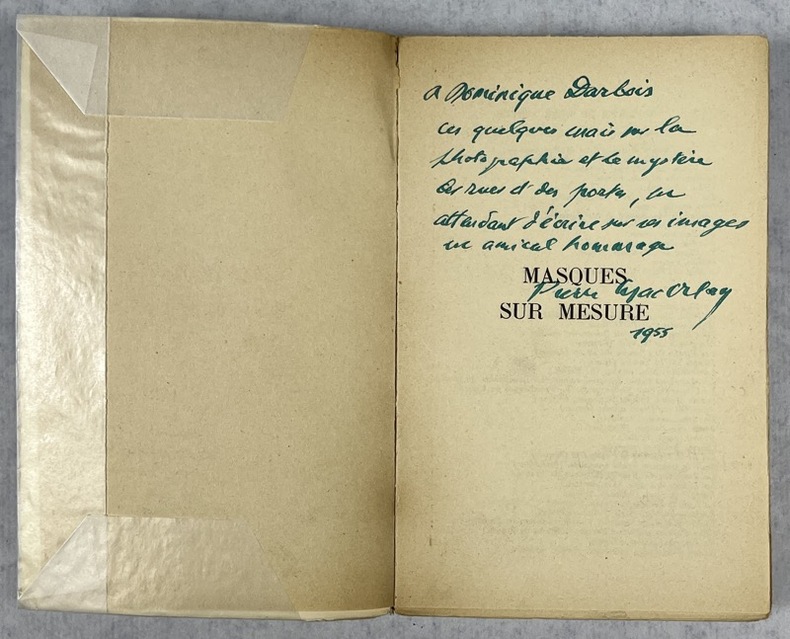 A Dominique Darbois
ces quelques mots sur la
photographie et le mystère
des rues et des ports, en
attendant d'écrire sur ses images
un amical hommage
MASQUES
Pierre Mac Orlan
SUR MESURE
1955